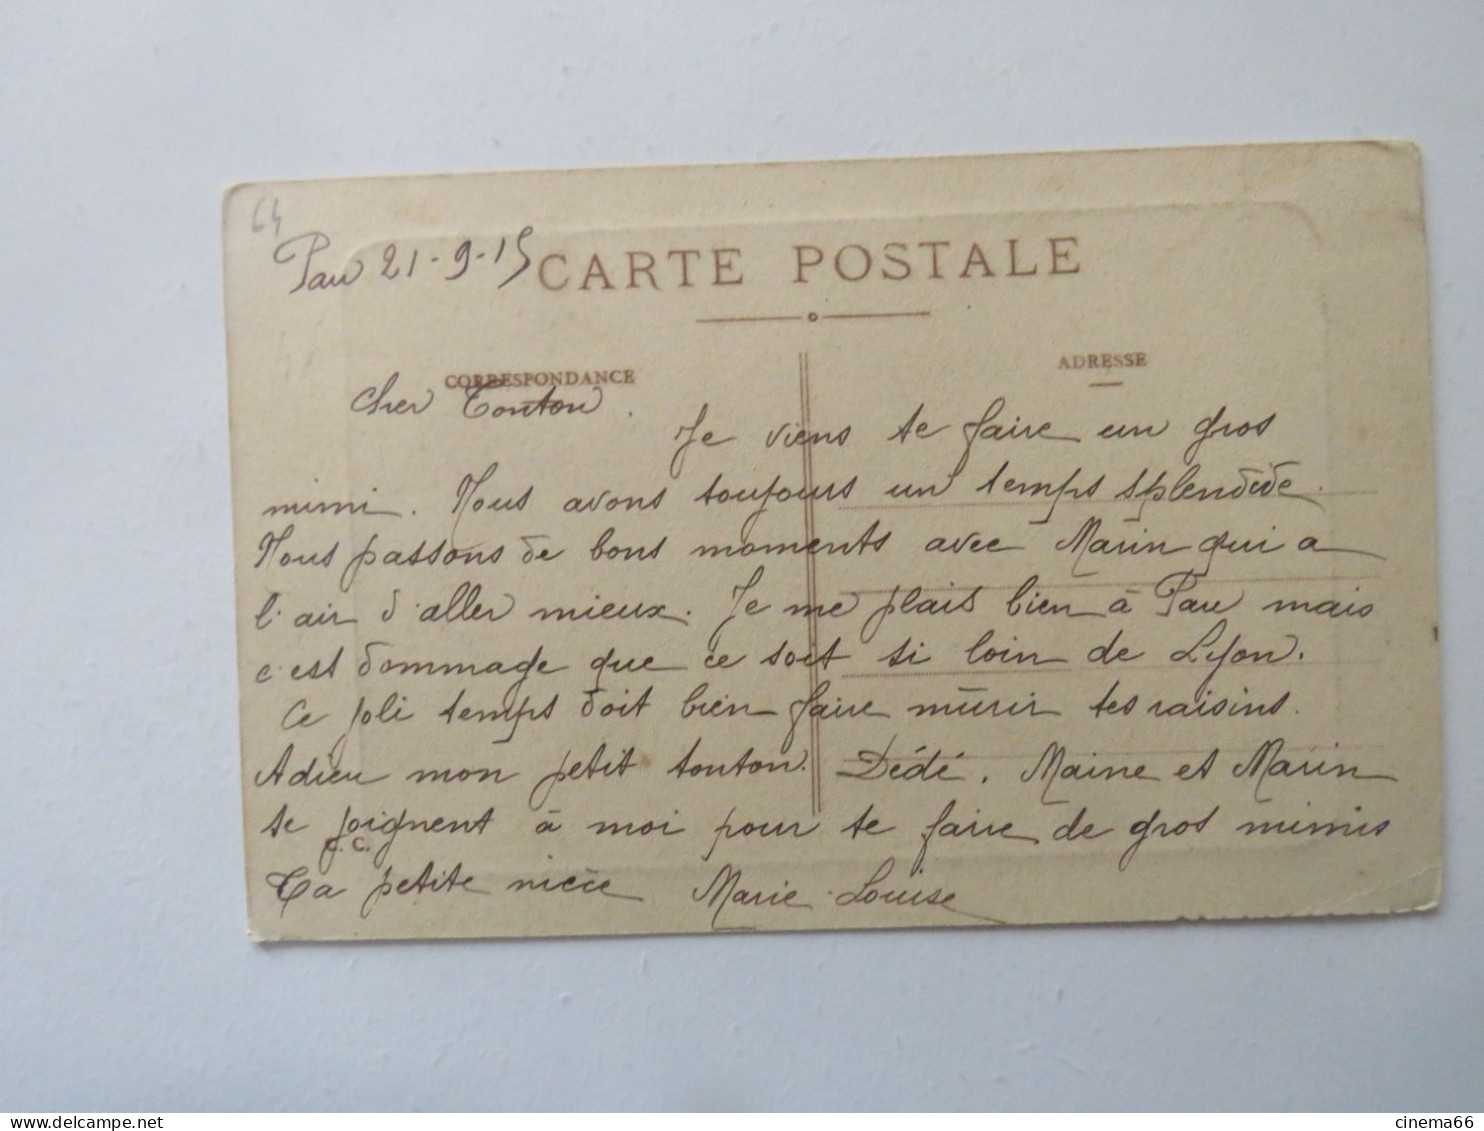 64
Pau 21-9-15
CARTE POSTALE
CORRESPONDANCE
ADRESSE
Cher Tonton.
Je viens te faire un gros
mimi. Nous avons toujours un temps splendide.
Nous passons de bons moments avec Marin qui a
l'air d'aller mieux. Je me plais bien à Pau mais
c'est dommage que ce soit si loin de Lyon.
Ce joli temps doit bien faire mûrir tes raisins.
Adieu mon petit tonton. Dédé, Maine et Marin
se joignent à moi pour te faire de gros mimis
C. C.
Ta petite nièce Marie-Louise
cinema66